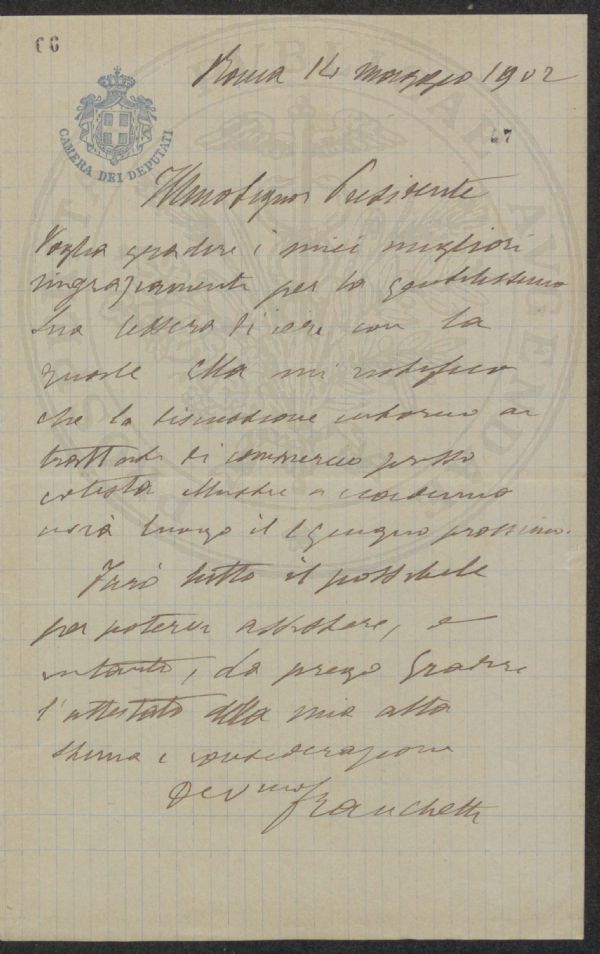 66
Roma 14 maggio 1902
CAMERA DEI DEPUTATI
47
Illmo Signor Presidente
Voglia gradire i miei migliori
ringraziamenti per la gentilissima
Sua lettera di ieri con la
quale Ella mi notifica
che la discussione intorno ai
trattati di commercio presso
cotesta illustre accademia
avrà luogo il 1 giugno prossimo.
Farò tutto il possibile
per potervi assistere, e
intanto, La prego gradire
l'attestato della mia alta
stima e considerazione
Devmo Franchetti